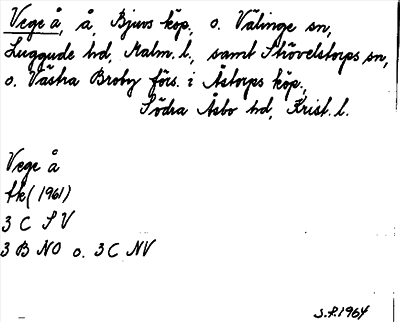 Vege å, å, Bjuvs köp. o. Välinge sn,
Luggude hd, Malm. l., samt Stövelstorps sn,
o. Västra Broby förs. i Åstorps köp.,
Södra Åsbo hd, Krist. l.
Vege å
tk (1961)
3 C SV
3 B NO o. 3 C NV
S.F. 1964